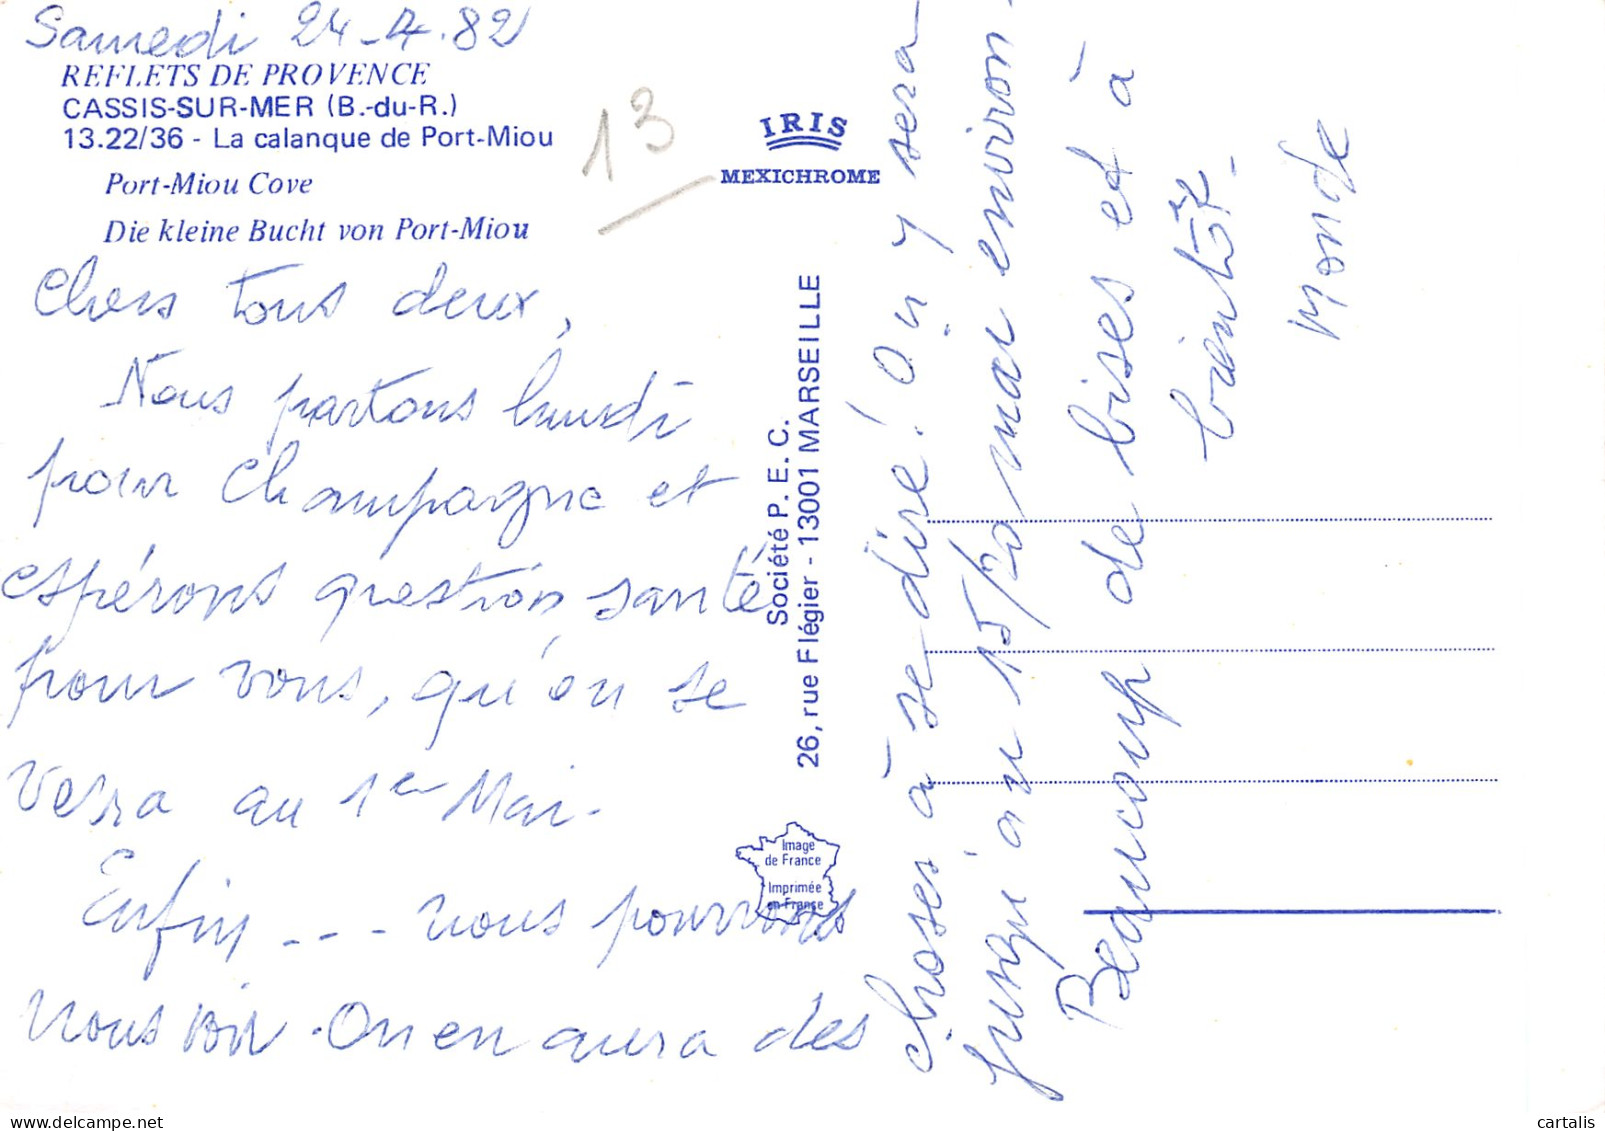 Samedi 24-4.82
REFLETS DE PROVENCE
CASSIS-SUR-MER (B.-du-R.)
13.22/36 - La calanque de Port-Miou
Port-Miou Cove
Die kleine Bucht von Port-Miou
13
IRIS
MEXICHROME
Chers tous deux,
Nous partons lundi
pour Champagne et
espérons question santé
pour vous, qu'on se
verra au 1er Mai.
Enfin --- nous pourrons
nous voir. On en aura des
choses à se dire! On y sera
jusqu'au 15/20 mai environ.
Beaucoup de bises et à
bientôt.
Monde
Société P. E. C.
26, rue Flégier - 13001 MARSEILLE
Image
de France
Imprimée
en France
cartalis